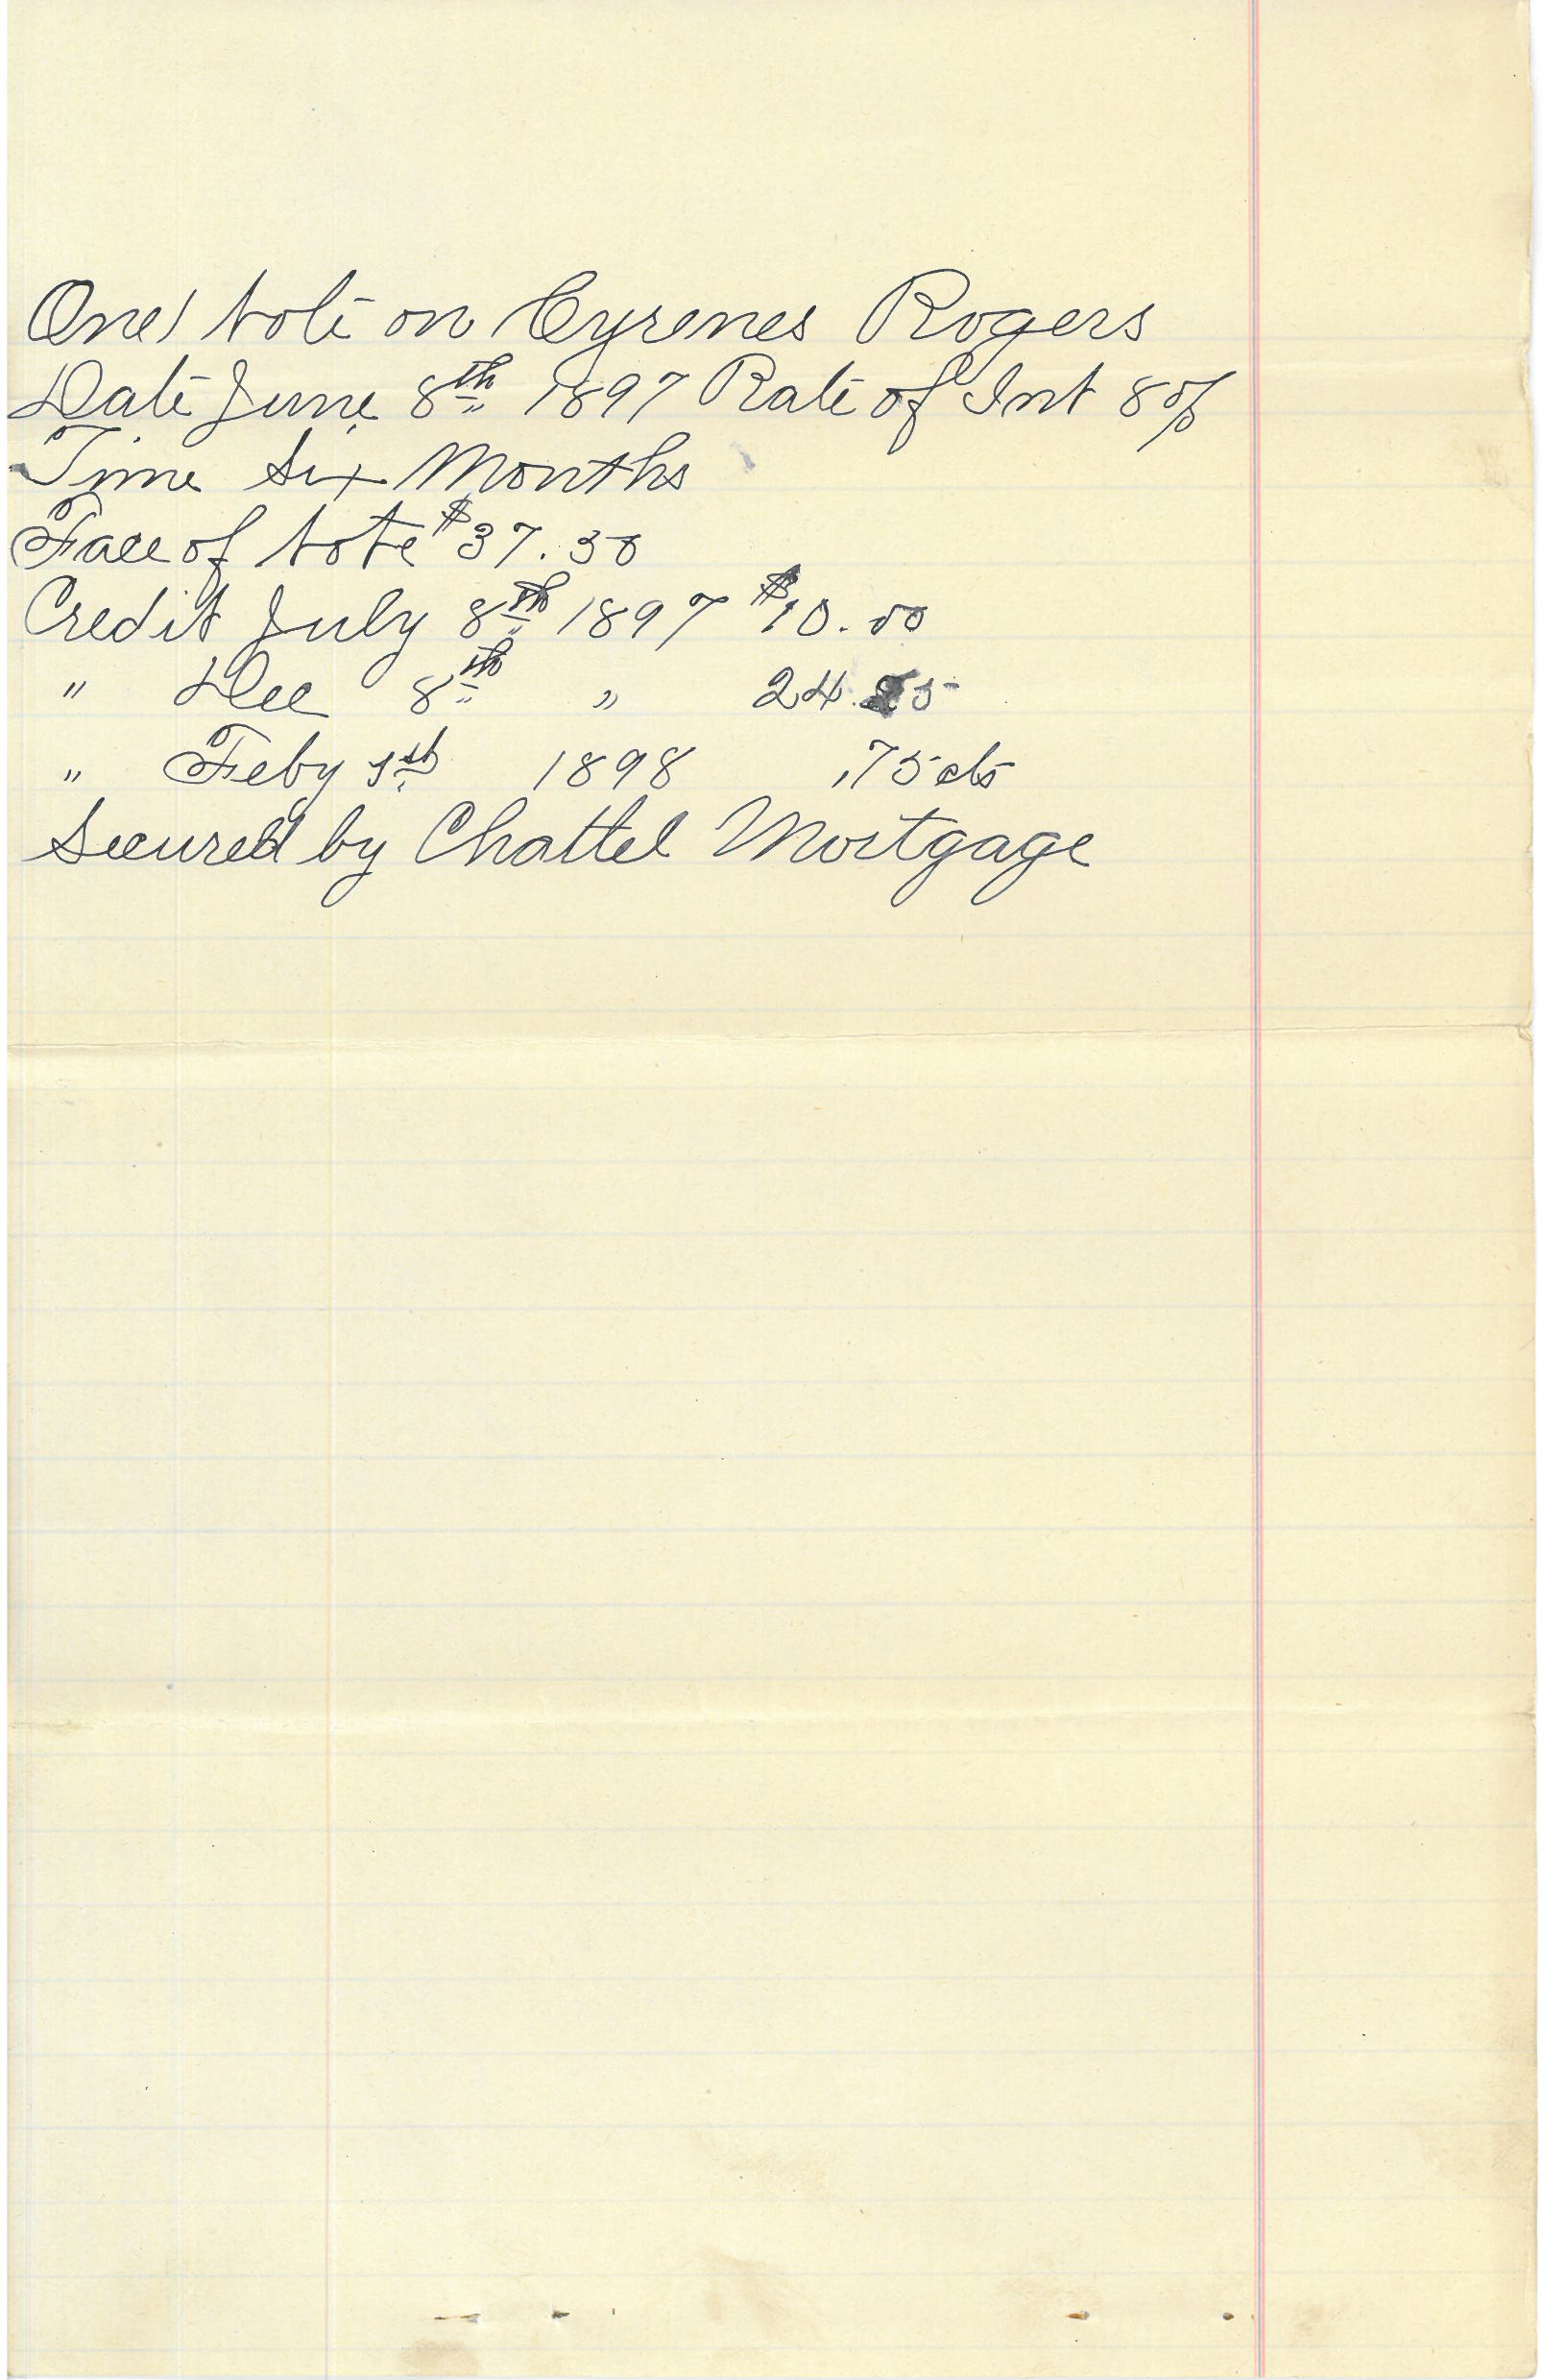 One Note on Cyrenes Rogers
Date June 8th 1897 Rate of Int 8%
Time Six Months
Face of Note $37.50
Credit July 8th 1897 $10.00
" Dec 8th " 24.25
" Feby 1st 1898 .75 cts
Secured by Chattel Mortgage